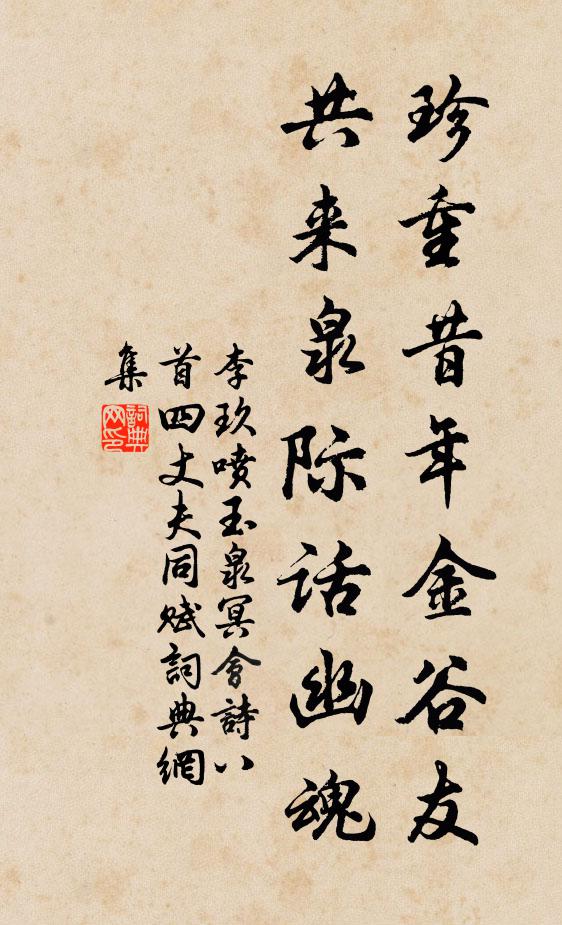 珍重昔年金谷友
共来泉际话幽魂
李玖喷玉泉冥會詩八
首四丈夫同赋詞典網
集
詞典
网印